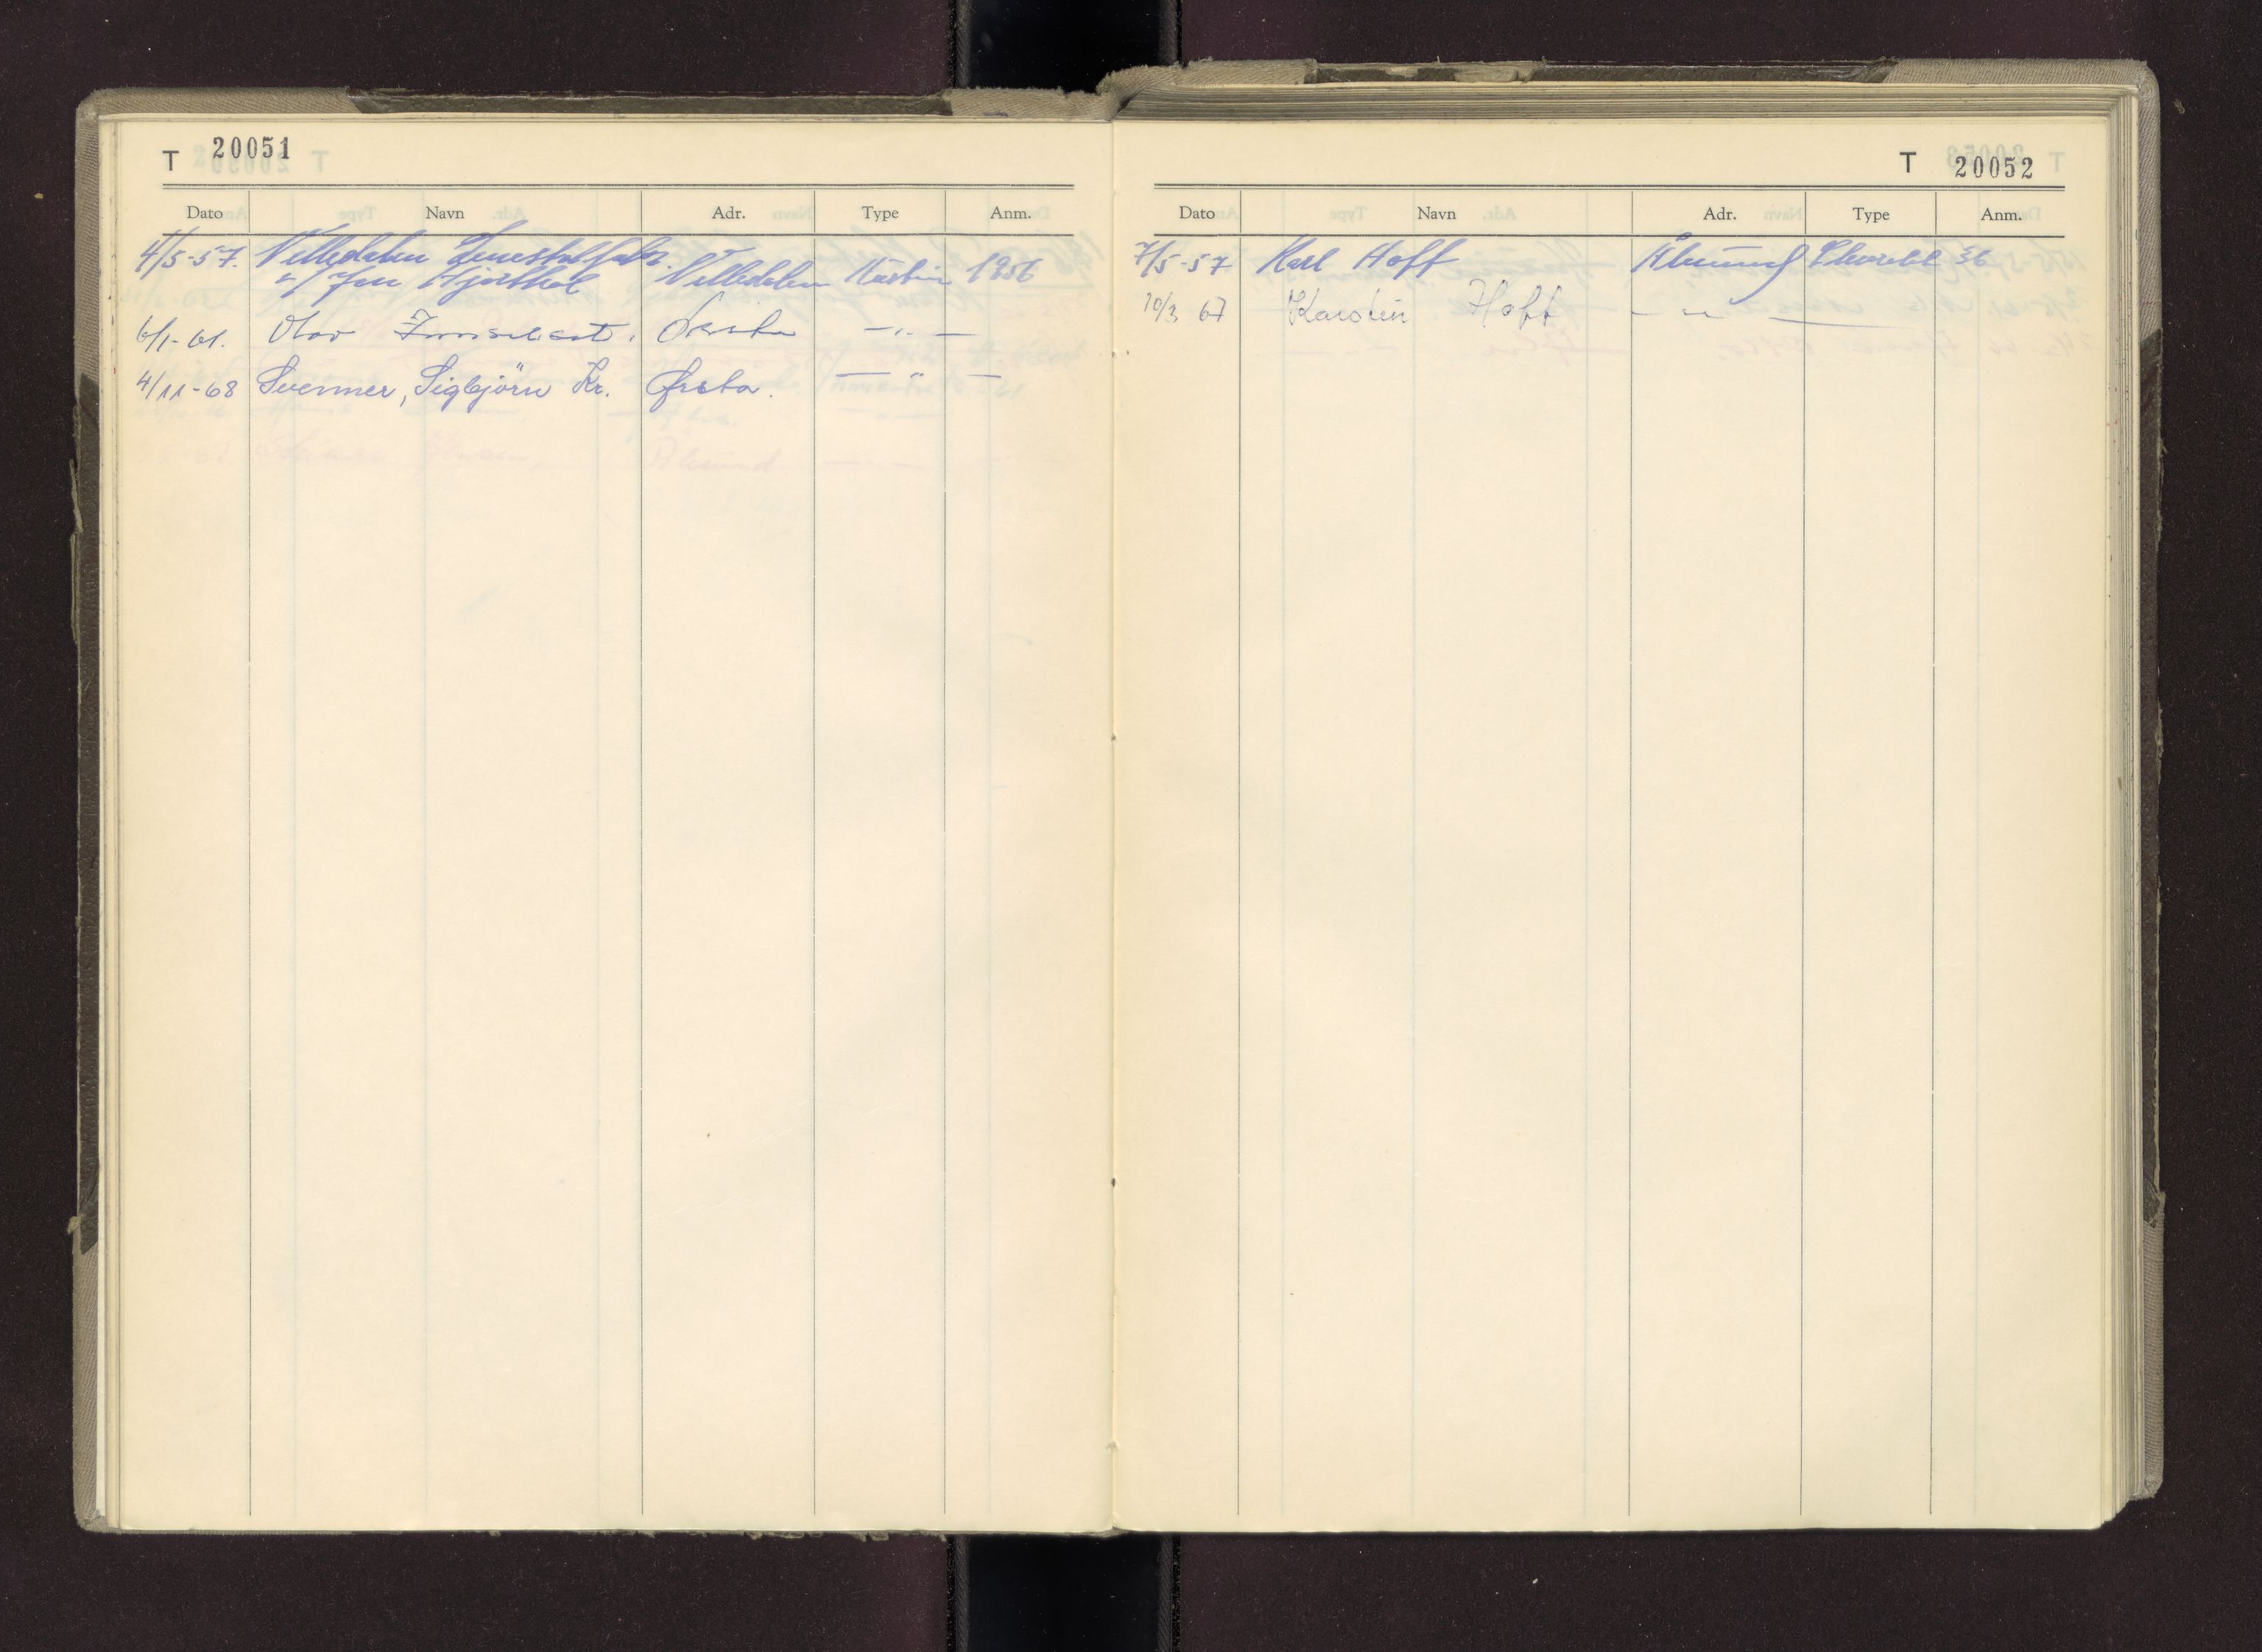 T 20051
Dato Navn Adr. Type Anm.
4/5-57. Velledalen
v/ Jon Hjorthol Velledalen Austin 1956
6/1-61. Olav Ørsta -"-
4/11-68 Svenner, Sigbjörn Kr. Ørsta. -"-
T 20052
Dato Navn Adr. Type Anm.
7/5-57 Karl Hoff Ålesund Chevrolet 36
10/3 67 Karstein Hoff -"-